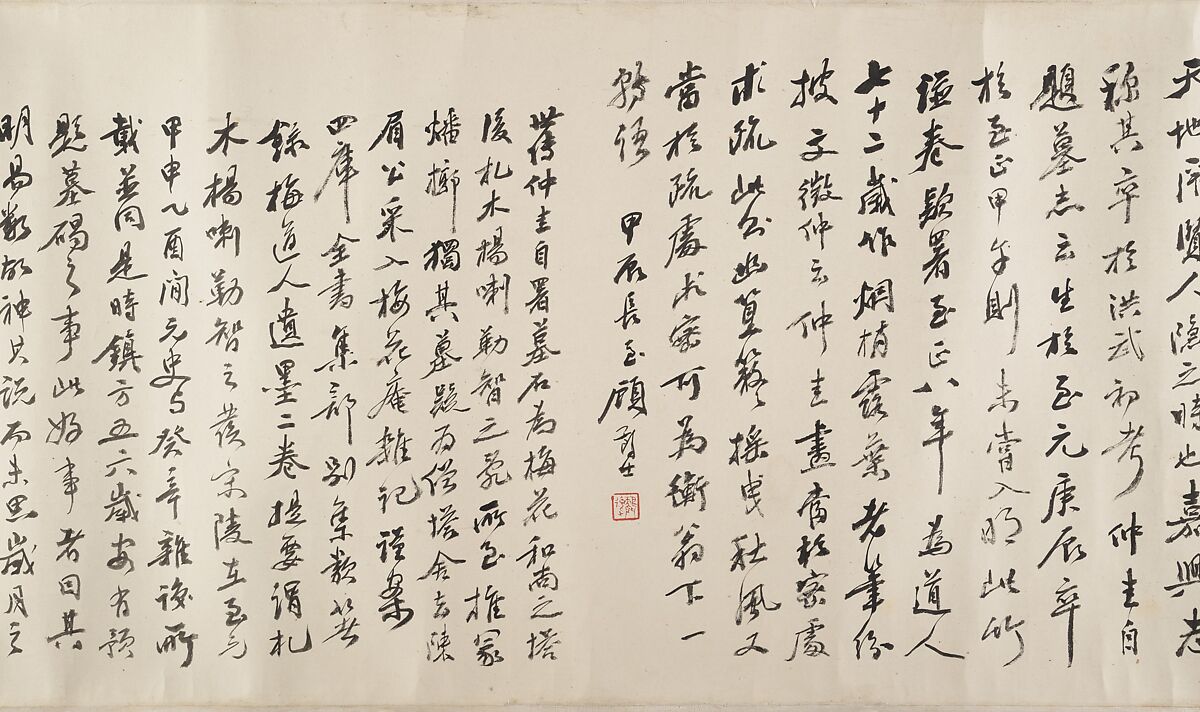 天地閉賢人隱之時也嘉興志
稱其卒於洪武初考仲圭自
題墓志云生於至元庚辰卒
於至正甲午則未嘗入明此竹
卷款署至正八年為道人
七十二歲作烟梢露葉老筆紛
披文徵仲云仲圭畫當於密處
求疏此公幽篁摇曳秋風又
當於疏處求密可為衡翁下一
轉語 甲辰長至顧
世傳仲圭自署墓石為梅花和尚之塔
後札木楊喇勒智之亂所至椎冢
燔槨獨其墓疑為僧塔舍去陳
眉公采入梅花庵雜記謹案
四庫全書集部別集類某
錄梅道人遺墨二卷提要謂札
木楊喇勒智之發宋陵在至元
甲申乙酉間元史與癸辛雜識所
載並同是時鎮方五六歲安有預
題墓碣之事此好事者因其
明易數故神其說而未思歲月之